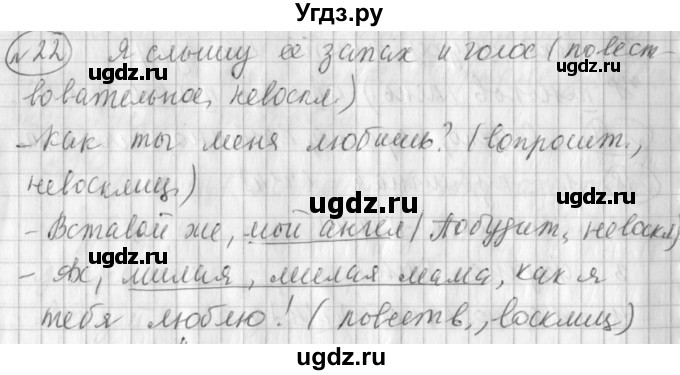 Угдз.ру
№22 Я слышу её запах и голос (повест-
вовательное, невоскл.)
- Как ты меня любишь? (вопросит.,
невосклиц.)
- Вставай же, мой ангел (Побудит., невоскл.)
- Ах, милая, милая мама, как я
тебя люблю! (повеств., восклиц)
ugdz.ru ugdz.ru
ugdz.ru ugdz.ru
ugdz.ru ugdz.ru
ugdz.ru ugdz.ru
ugdz.ru